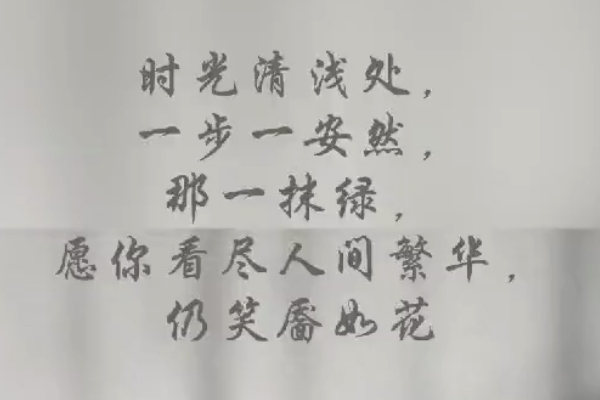 时光清浅处，
一步一安然，
那一抹绿，
愿你看尽人间繁华，
仍笑靥如花